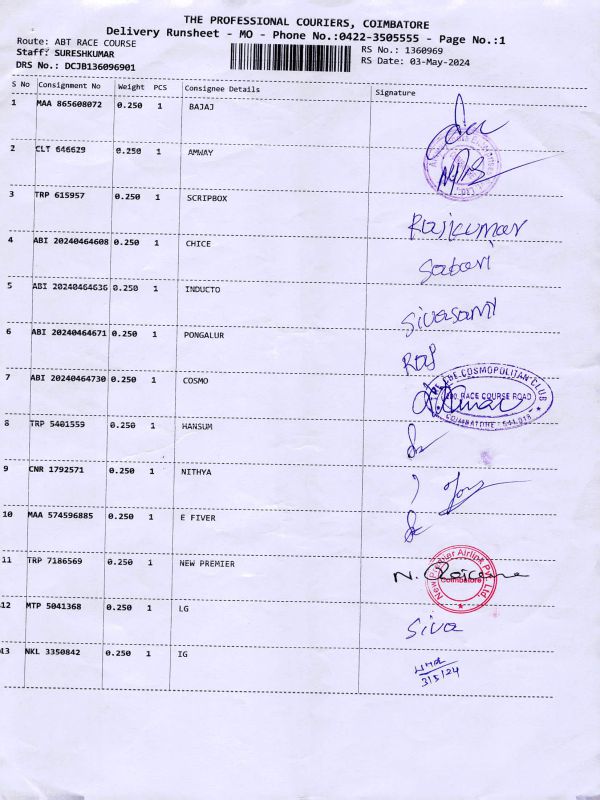 THE PROFESSIONAL COURIERS, COIMBATORE
Delivery Runsheet - MO - Phone No.:0422-3505555 - Page No.:1
Route: ABT RACE COURSE
RS No.: 1360969
Staff: SURESHKUMAR
RS Date: 03-May-2024
DRS No.: DCJB136096901
S No Consignment No Weight PCS Consignee Details Signature
1 MAA 865608072 0.250 1 BAJAJ
2 CLT 646629 0.250 1 AMWAY
3 TRP 615957 0.250 1 SCRIPBOX Rajkumar
4 ABI 20240464608 0.250 1 CHICE Sabari
5 ABI 20240464636 0.250 1 INDUCTO Sivasamy
6 ABI 20240464671 0.250 1 PONGALUR
7 ABI 20240464730 0.250 1 COSMO
COSMOPOLITAN CLUB
RACE COURSE ROAD
COIMBATORE - 641 018
8 TRP 5401559 0.250 1 HANSUM
9 CNR 1792571 0.250 1 NITHYA
10 MAA 574596885 0.250 1 E FIVER
11 TRP 7186569 0.250 1 NEW PREMIER
Coimbatore
12 MTP 5041368 0.250 1 LG Siva
13 NKL 3350842 0.250 1 IG
3/5/24